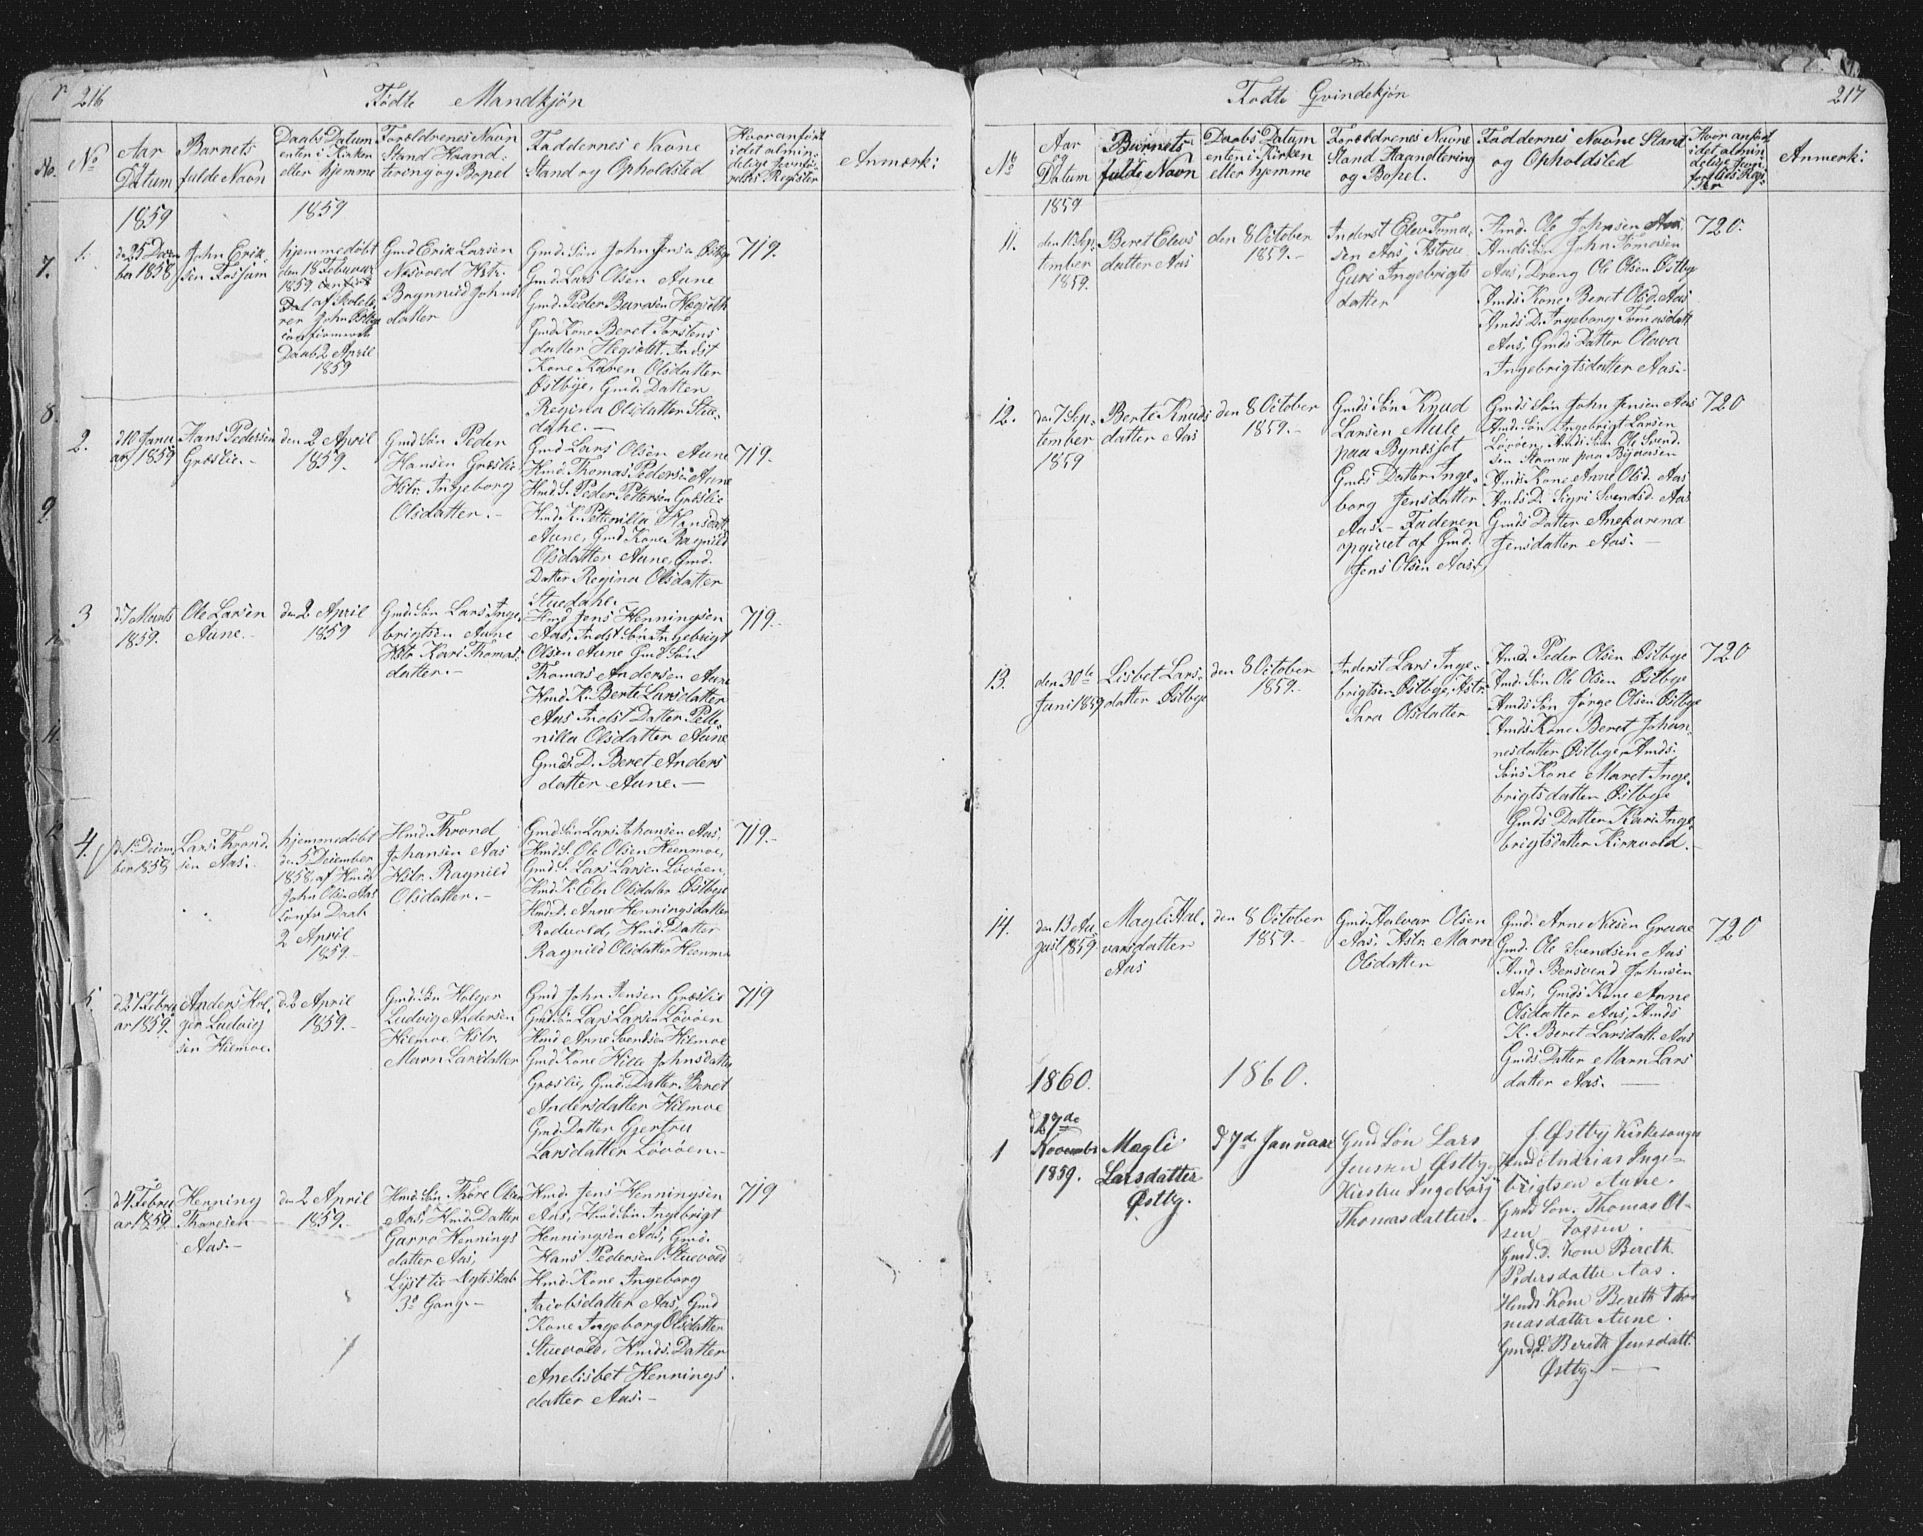 216
Fødte Mandkjön
No.
Aar
Datum
Barnets
fulde Navn
Daabs Datum
enten i Kirken
eller hjemme
Forældrenes Navn
Stand Haand-
tering og Bopel
Faddernes Navne
Stand og Opholdsted
Hvor anført
i det almin-
delige Jevnføringsregister
Anmærk:
1859
1859
1.
d. 25 Decem
ber 1858
John Erik-
sen Fosjum
hjemmedøbt
den 18 Februar
1859
af Skolelæ-
rer John Østbye
Daab 2 April
1859
Gmd Erik Larsen
Aasvold Hstr.
Brynnild Johns
datter
Gmd. Søn John Jensen Østbye
Gmd Lars Olsen Aune
Gmd. Peder
Gmd Kone Beret Torstens
datter Hegseth, Indst
Kone Karen Olsdatter
Østbye, Gmd. Datter
Regina Olsdatter Stue-
dahl. —
719.
2.
d 10 Janu
ar 1859
Hans Pedersen
Græslie.-
den 2 April
1859.
Gmd Søn Peder
Hansen Græslie
Hstr Ingeborg
Olsdatter. -
Gmd Lars Olsen Aune
Hmd. Thomas Pedersen Aune
Hmd S. Peder Pettersen Græslie
Hmd K. Petternilla Hansdatt
Aune, Gmd Kone Ragnild
Olsdatter Aune, Gmd.
Datter Regina Olsdatter
Stuedahl. —
719.
3
d 7 Marts
1859.
Ole Larsen
Aune. -
den 2 April
1859
Gmd. Søn Lars Inge-
brigtsen Aune
Hstr Kari Thomas-
datter. -
Hmd Jens Henningsen
Aas, Indst Søn Ingebrigt
Olsen Aune Gmd Søn
Thomas Andersen Aune
Hmd K. Berte Larsdatter
Aas Indst Datter Pette-
nilla Olsdatter Aune
Gmds D. Beret Anders
datter Aune. —
719.
4.
d. 1 Decem
ber 1858
Lars Thrond
sen Aas. -
hjemmedøbt
den 5 December
1858, af Hmd
John Olsen Aas
Confr Daab
2 April
1859.-
Hmd. Thrond
Johansen Aas
Hstr. Ragnild
Olsdatter. -
Gmd Søn Lars Johansen Aas,
Hmd S. Ole Olsen Heenmoe,
Gmd S. Lars Larsen Løvøen,
Hmd. K. Eln Olsdatter Østbye
Hmd D. Anne Henningsdatter
Rodvold, Hmd. Datter
Ragnild Olsdatter Heenmo
719.-
5.
d. 27 Febru
ar 1859.
Anders Hol-
ger Ludvig
sen Hilmoe.
d. 2 April
1859.-
Gmd. Søn Holger
Ludvig Andersen
Hilmoe, Hstr.
Marn Larsdatter
Gmd John Jensen Græslie
Gmd Søn Lars Larsen Løvøen
Hmd Arne Svendsen Hilmoe
Gmd Kone Hille Johnsdatter
Græslie, Gmd. Datter. Beret
Andersdatter Hilmoe
Gmd. Datter Gjertru
Larsdatter Løvøen. -
719
d. 4 Febru
ar 1859.
Henning
Thoresen
Aas. -
den 2 April
1859. -
Hmd. Søn Thore Olsen
Aas, Hmd Datter
Garro Hennings
datter Aas,
Lyst til Ægteskab
3 Gang. -
Hmd. Jens Henningsen
Aas, Hmd Søn Ingebrigt
Henningsen Aas, Gmd.
Hans Pedersen Stuevold
Hmd. Kone Ingeborg
Jacobsdatter Aas, Gmd
Kone Ingeborg Olsdatter
Stuevold, Hmds. Datter
Anelisbet Hennings
datter Aas. -
719
217
Fødte Qvindekjön
No
Aar
og
Datum
Barnets
fulde Navn
Daabs Datum
enten i Kirken
eller hjemme
Forældrenes Navne
Stand Haandtering
og Bopel.
Faddernes Navne Stand
og Opholdsted
Hvor anført
i det almin
delige Jevn
Anmerk:
1859
11.
den 10 Sep-
tember
1859.
Beret Elevs
datter Aas
den 8 October
1859. -
Inderst Elev Toma-
sen Aas, Hstrue
Guri Ingebrigts
datter
Hmd. Ole Johnsen Aas,
Hmds Søn John Tomasen
Aas, Dreng Ole Olsen Østbye
Hmds Kone, Beret Olsd. Aas
Hmds D. Ingeborg Tomasdatt
Aas, Gmds Datter Olava
Ingebrigtsdatter Aas. -
720.
12.
den 7 Sep-
tember
1859
Berte Knuds
datter Aas
den 8 October
1859. -
Gmds Søn Knud
Larsen Mule
paa Bynesset
Gmds Datter Inge-
borg Jensdatter
Aas. - Faderen
opgivet af Gmd.
Jens Olsen Aas.
Gmds Søn John Jensen Aas
Hmd. Søn Ingebrigt Larsen
Løvøen, Hmds Søn Ole Svend-
sen Stamne paa Byneset
Hmds Kone Anne Olsd. Aas
Hmds D. Sigri Svendsd. Aas
Gmds Datter Anekarena
Jensdatter Aas. —
720
13.
den 30te
Juni 1859
Lisbet Lars-
datter Østbye
den 8 October
1859. -
Inderst Lars Inge-
brigtsen Østbye, Hstr.
Sara Olsdatter
Hmd. Peder Olsen Østbye
Hmd. Søn Ole Olsen Østbye
Hmds Søn Jørge Olsen Østbye
Hmds Kone Beret Johan-
nesdatter Østbye, Hmds
Søns Kone Maret Inge-
brigtsdatter Østbye
Gmds Datter Kari Inge-
brigtsdatter Kirkvold. -
720
14.
den 13 Au-
gust 1859
Magli Hal-
varsdatter
Aas
den 8 October
1859. -
Gmds Halvar Olsen
Aas, Hstr. Marn
Olsdatter
Gmd. Arne Nilsen Græae
Gmd. Ole Svendsen Aas
Hmd Bersvend Johnsen
Aas, Gmds Kone Anne
Olsdatter Aas, Hmds
K. Beret Larsdatt. Aas
Gmds Datter Marn Lars
datter Aas. —
720
1860.
1860.
1
d 27de
November
1859.
Magli
Larsdatter
Østby.
d 7de Januar
Gmd Søn Lars
Jensen Østby
Huestru Ingeborg
Thomasdatter.
J. Østby Kirkesanger
Hmd Andrias Inge-
brigtsen Aune.
Gmd Søn. Thomas Ol-
sen
Gmd. d. Kone Bereth
Pedersdatter Aas.
Hmds Kone Bereth Tho-
masdatter Aune.
Gmd d. Bereth Jensdatt.
Østby. —